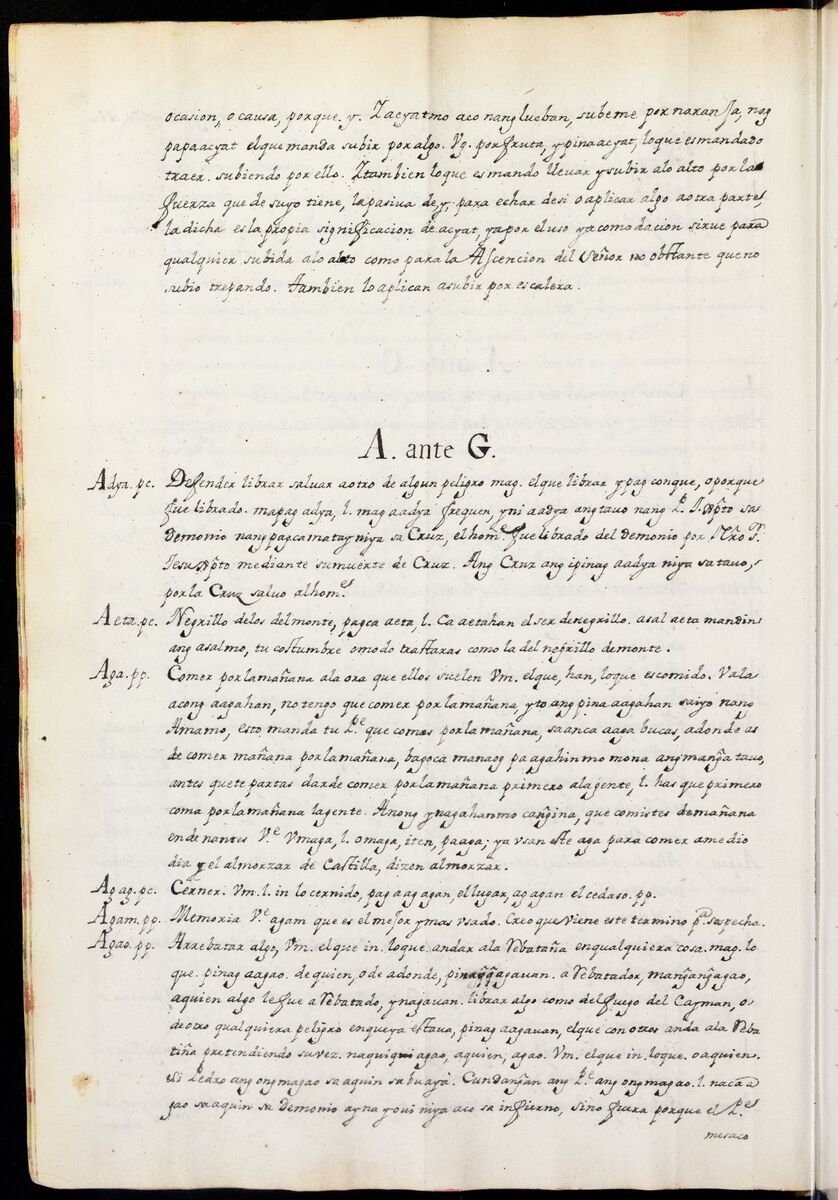 ocasion, o causa, porque. y. Zacyatmo aco nang lucban, subeme por naranja, nag
papaacyat el que manda subir por algo. Vg. por fruta, ypinaacyat, lo que es mandado
traer. subiendo por ello. Ztambien lo que es mando lleuar y subir alo alto por la
fuerza que de suyo tiene, la pasiua de, y, para echar desi o aplicar algo a otra parte,
la dicha es la propia significacion de acyat, ya por el uso y acomodacion sirue para
qualquier subida alo alto como para la Ascencion del Señor no obstante que no
subio trepando. Tambien lo aplican a subir por escalera.
A. ante G.
Adya. pc. Defender librar saluar a otro de algun peligro mag. el que librar ypag conque, o porque
fue librado. mapag adya, l. mag aadya frequen, yni aadya ang tauo nang P. J. Xp̃to sa
Demonio nang pagcamatay niya sa Cruz, el home. fue librado del demonio por Nro P.
Jesu Xp̃to mediante su muerte de Cruz. Ang Cruz ang ipinag aadya niya sa tauo,
por la Cruz saluo al home.
Aeta. pc. Negrillo delos del monte, pagca aeta, l. Ca aetahan el ser de negrillo. asal aeta mandin
ang asalmo, tu costumbre o modo trastaras como la del negrillo demonte.
Aga. pp. Comer por la mañana ala ora que ellos suelen Vm. el que, han, lo que es comido. Vala
acong aagahan, no tengo que comer por la mañana, yto ang pina aagahan saiyo nang
Amamo, esto, manda tu Pe que comas por la mañana, saan ca aaga bucas, adonde as
de comer mañana por la mañana, bagoca manaog paagahinmo mona ang mang̃a tauo,
antes que te partas dar de comer por la mañana primero ala gente, l. has que primero
coma por la mañana la gente. Anong ynagahanmo cang̃ina, que comistes de mañana
endenantes Ve Vmaga, l. omaga, iten, paaga; ya vsan este aga para comer a medio
dia y el almorzar de Castilla, dizen almorzar.
Agag. pc. Cerner. Vm. l. in lo cernido, pag aagagan, el lugar, agagan el cedaso. pp.
Agam. pp. Memoria Ve agam que es el mejor y mas vsado. Creo que viene este termino pa. sospecha.
Agao. pp. Arrebatar algo, Vm. el que in. lo que. andar ala rebataña en qualquiera cosa. mag. lo
que. pinag aagao. de quien, o de adonde, a rebatador, mang̃ang̃agao,
aquien algo le fue a rebatado, ynagauan. librar algo como del fuego del Cayman, o
de otro qualquiera peligro en que ya estaua, pinag aagauan, el que con otros anda ala reba
tiña pretendiendo su vez. naquiqui agao, aquien, agao. Vm. el que in. lo que. o aquien.
Si Pedro ang ongmagao sa aquin sa buaya. Cundang̃an ang Pe ang ongmagao. l. naca a
gao sa aquin sa Demonio ay na youi niya aco sa infierno, sino fuera porque el Pe
me saco